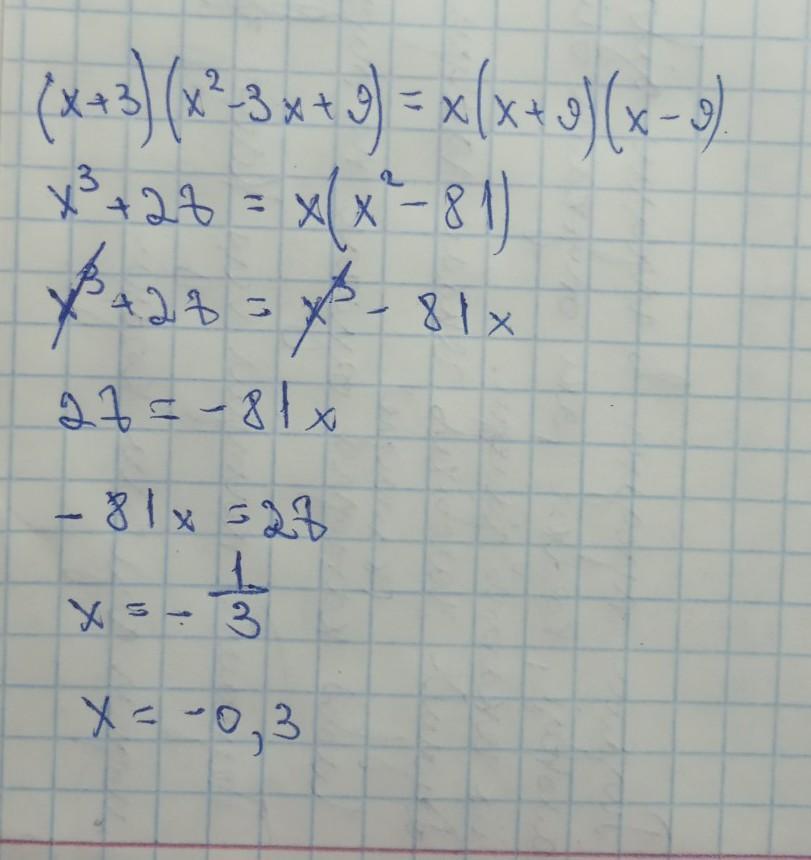 (x+3)(x²-3x+9)=x(x+9)(x-9).
x³+27=x(x²-81)
x³+27=x³-81x
27=-81x
-81x=27
x=-1/3
x=-0,3